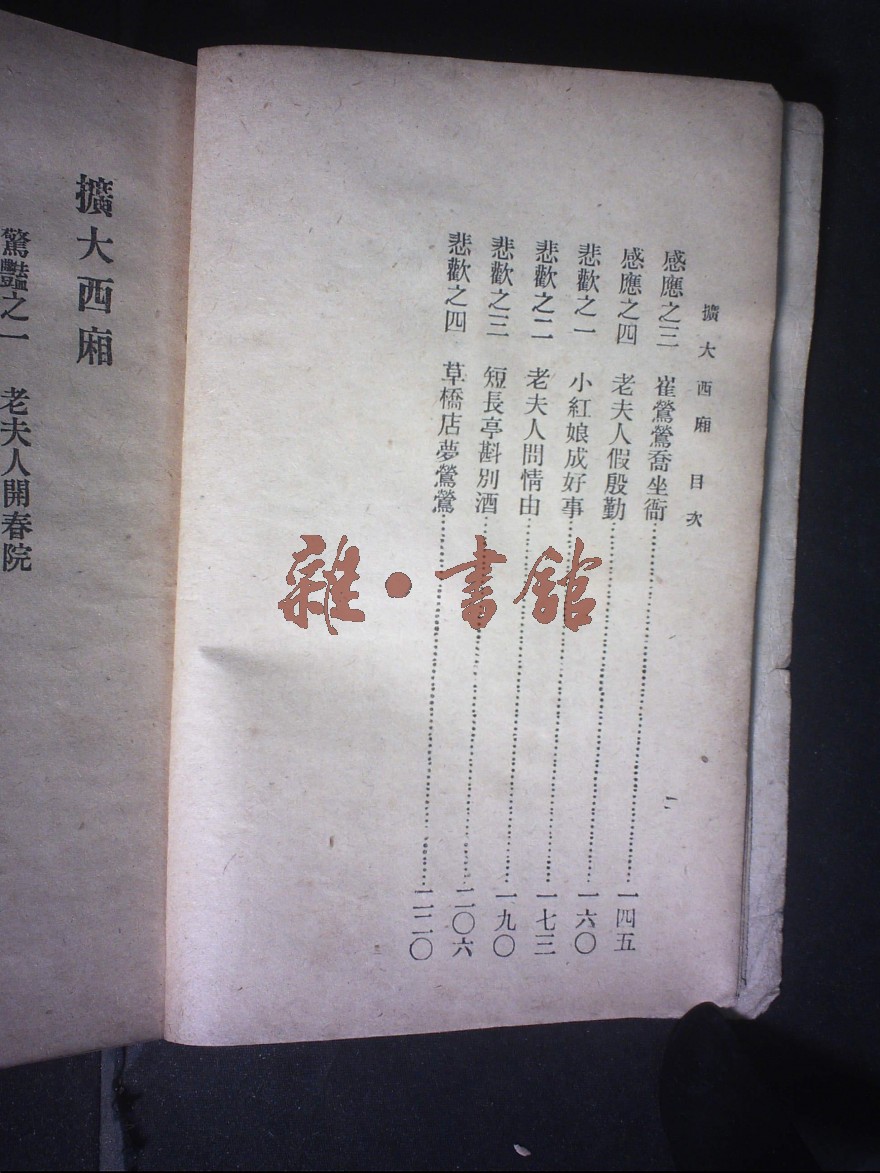 擴大西廂 目次
感應之三 崔鶯鶯喬坐衙……一四五
感應之四 老夫人假殷勤……一六〇
悲歡之一 小紅娘成好事……一七三
悲歡之二 老夫人問情由……一九〇
悲歡之三 短長亭斟別酒……二〇六
悲歡之四 草橋店夢鶯鶯……二二〇
擴大西廂
驚豔之一 老夫人開春院
雜·書館